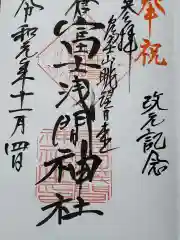 奉祝
改元記念
参拝
富士山眺望
富士浅間神社
令和元年十一月四日